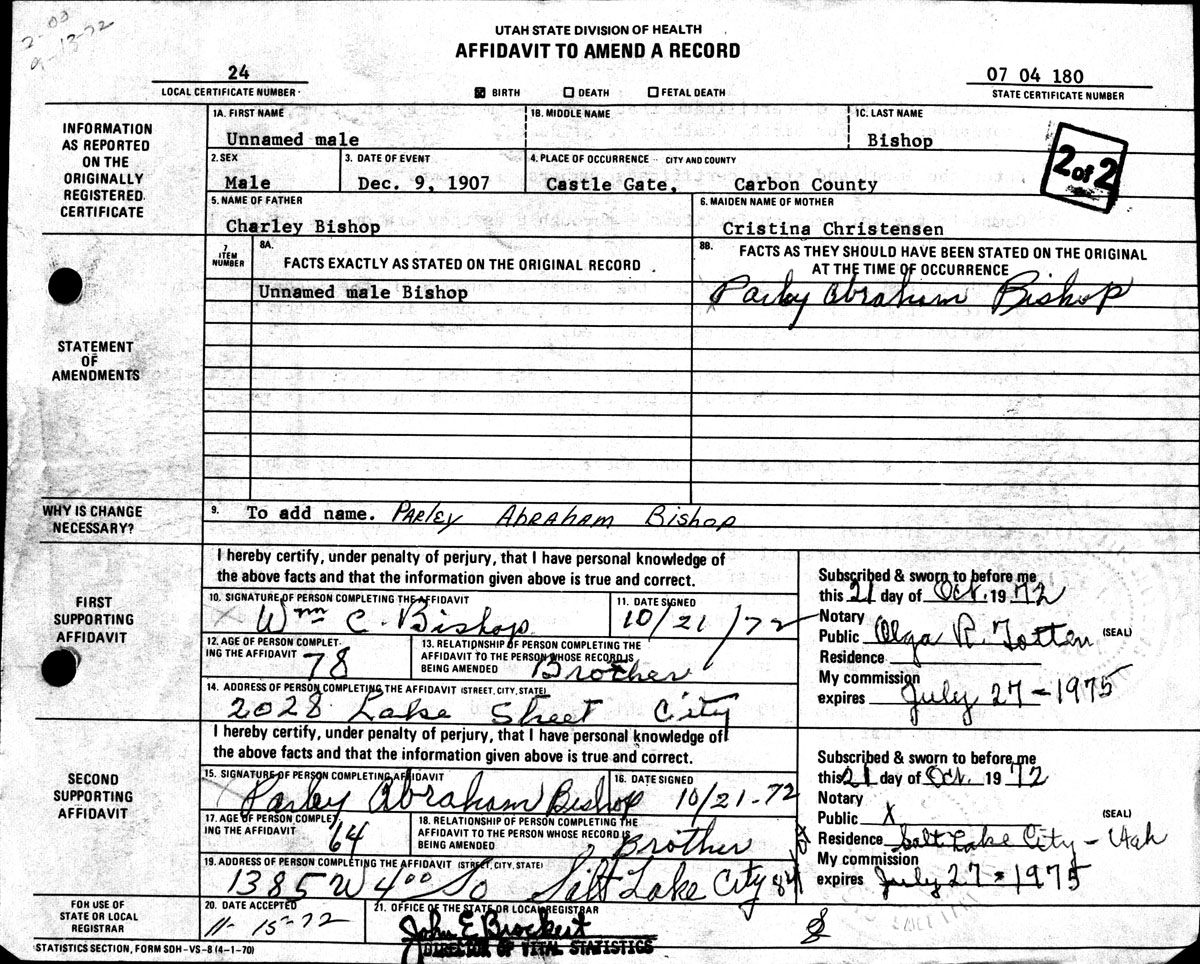 2-00
9-13-72
UTAH STATE DIVISION OF HEALTH
AFFIDAVIT TO AMEND A RECORD
24
LOCAL CERTIFICATE NUMBER
BIRTH DEATH FETAL DEATH
07 04 180
STATE CERTIFICATE NUMBER
INFORMATION AS REPORTED ON THE ORIGINALLY REGISTERED CERTIFICATE
1A. FIRST NAME 1B. MIDDLE NAME 1C. LAST NAME
Unnamed male Bishop
2 of 2
2. SEX 3. DATE OF EVENT 4. PLACE OF OCCURRENCE -- CITY AND COUNTY
Male Dec. 9, 1907 Castle Gate, Carbon County
5. NAME OF FATHER 6. MAIDEN NAME OF MOTHER
Charley Bishop Cristina Christensen
STATEMENT OF AMENDMENTS
7 ITEM NUMBER
8A. FACTS EXACTLY AS STATED ON THE ORIGINAL RECORD
8B. FACTS AS THEY SHOULD HAVE BEEN STATED ON THE ORIGINAL
AT THE TIME OF OCCURRENCE
Unnamed male Bishop Parley Abraham Bishop
WHY IS CHANGE NECESSARY?
9. To add name. PARLEY ABRAHAM BISHOP
FIRST SUPPORTING AFFIDAVIT
I hereby certify, under penalty of perjury, that I have personal knowledge of
the above facts and that the information given above is true and correct.
10. SIGNATURE OF PERSON COMPLETING THE AFFIDAVIT 11. DATE SIGNED
X Wm C. Bishop 10/21/72
12. AGE OF PERSON COMPLETING THE AFFIDAVIT 78
13. RELATIONSHIP OF PERSON COMPLETING THE
AFFIDAVIT TO THE PERSON WHOSE RECORD IS
BEING AMENDED Brother
14. ADDRESS OF PERSON COMPLETING THE AFFIDAVIT (STREET, CITY, STATE)
2028 Lake Street City
Subscribed & sworn to before me
this 21 day of Oct. 1972
Notary
Public Olga R. Totten (SEAL)
Residence
My commission
expires July 27-1975
SECOND SUPPORTING AFFIDAVIT
I hereby certify, under penalty of perjury, that I have personal knowledge of
the above facts and that the information given above is true and correct.
15. SIGNATURE OF PERSON COMPLETING AFFIDAVIT 16. DATE SIGNED
X Parley Abraham Bishop 10/21-72
17. AGE OF PERSON COMPLETING THE AFFIDAVIT 64
18. RELATIONSHIP OF PERSON COMPLETING THE
AFFIDAVIT TO THE PERSON WHOSE RECORD IS
BEING AMENDED Brother
19. ADDRESS OF PERSON COMPLETING THE AFFIDAVIT (STREET, CITY, STATE)
1385 W 400 So Salt Lake City
Subscribed & sworn to before me
this 21 day of Oct. 1972
Notary
Public X (SEAL)
Residence Salt Lake City - Utah
My commission
expires July 27-1975
FOR USE OF STATE OR LOCAL REGISTRAR
20. DATE ACCEPTED 21. OFFICE OF THE STATE OR LOCAL REGISTRAR
11-15-72 John E Brockert
DIRECTOR OF VITAL STATISTICS
STATISTICS SECTION, FORM SDH-VS-8 (4-1-70)